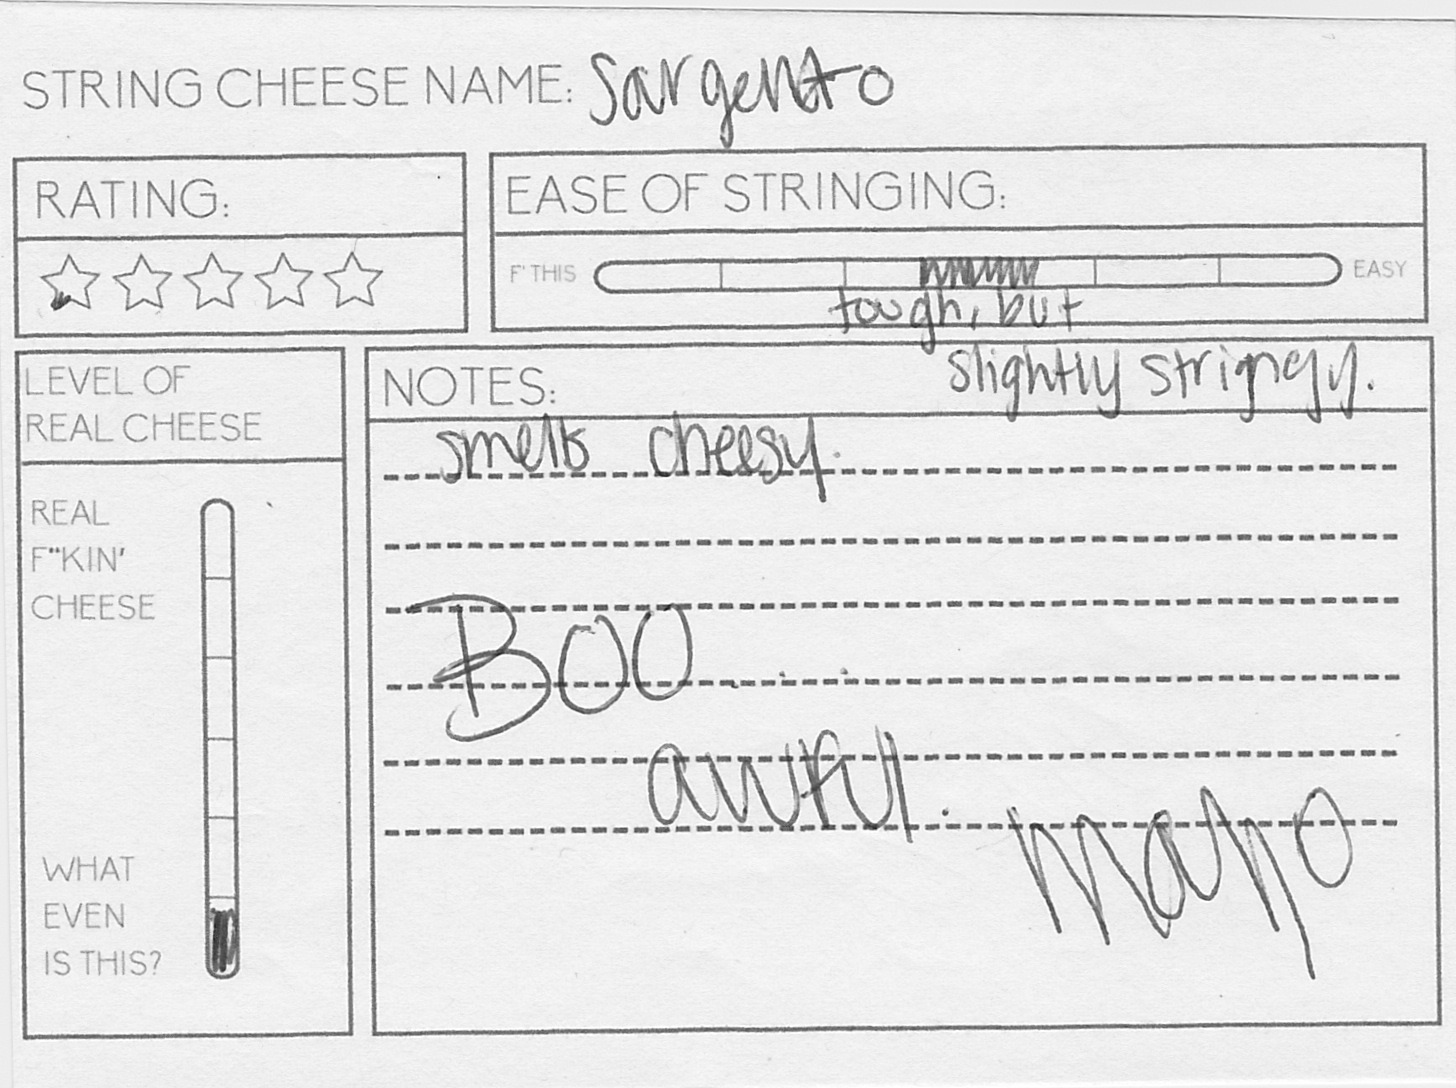 STRING CHEESE NAME: Sargento
RATING:
EASE OF STRINGING:
F' THIS
EASY
tough, but
slightly strigngy.
LEVEL OF
REAL CHEESE
REAL
F**KIN'
CHEESE
WHAT
EVEN
IS THIS?
NOTES:
smells cheesy.
BOO
awful.
mayo